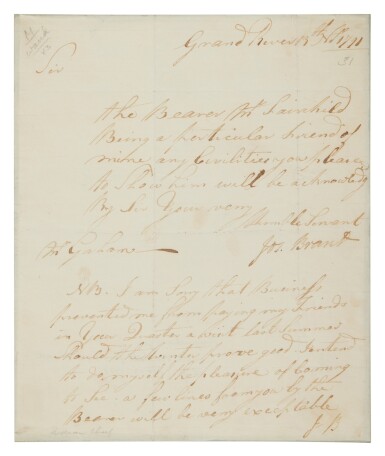 Grand River 13th 1791
Sir
the Bearer Mr Fairchild
Being a particular friend of
mine any Civilities you please
to Show him will be acknowledged
By Sir Your very
Humble Servant
Jos. Brant
NB. I am Sorry that Business
prevented me from paying my friends
in Your Quarter a visit last Summer
Should the Winter prove good I intend
to do myself the pleasure of Coming
to See. a few lines from you by the
Bearer will be very exceptable
J B